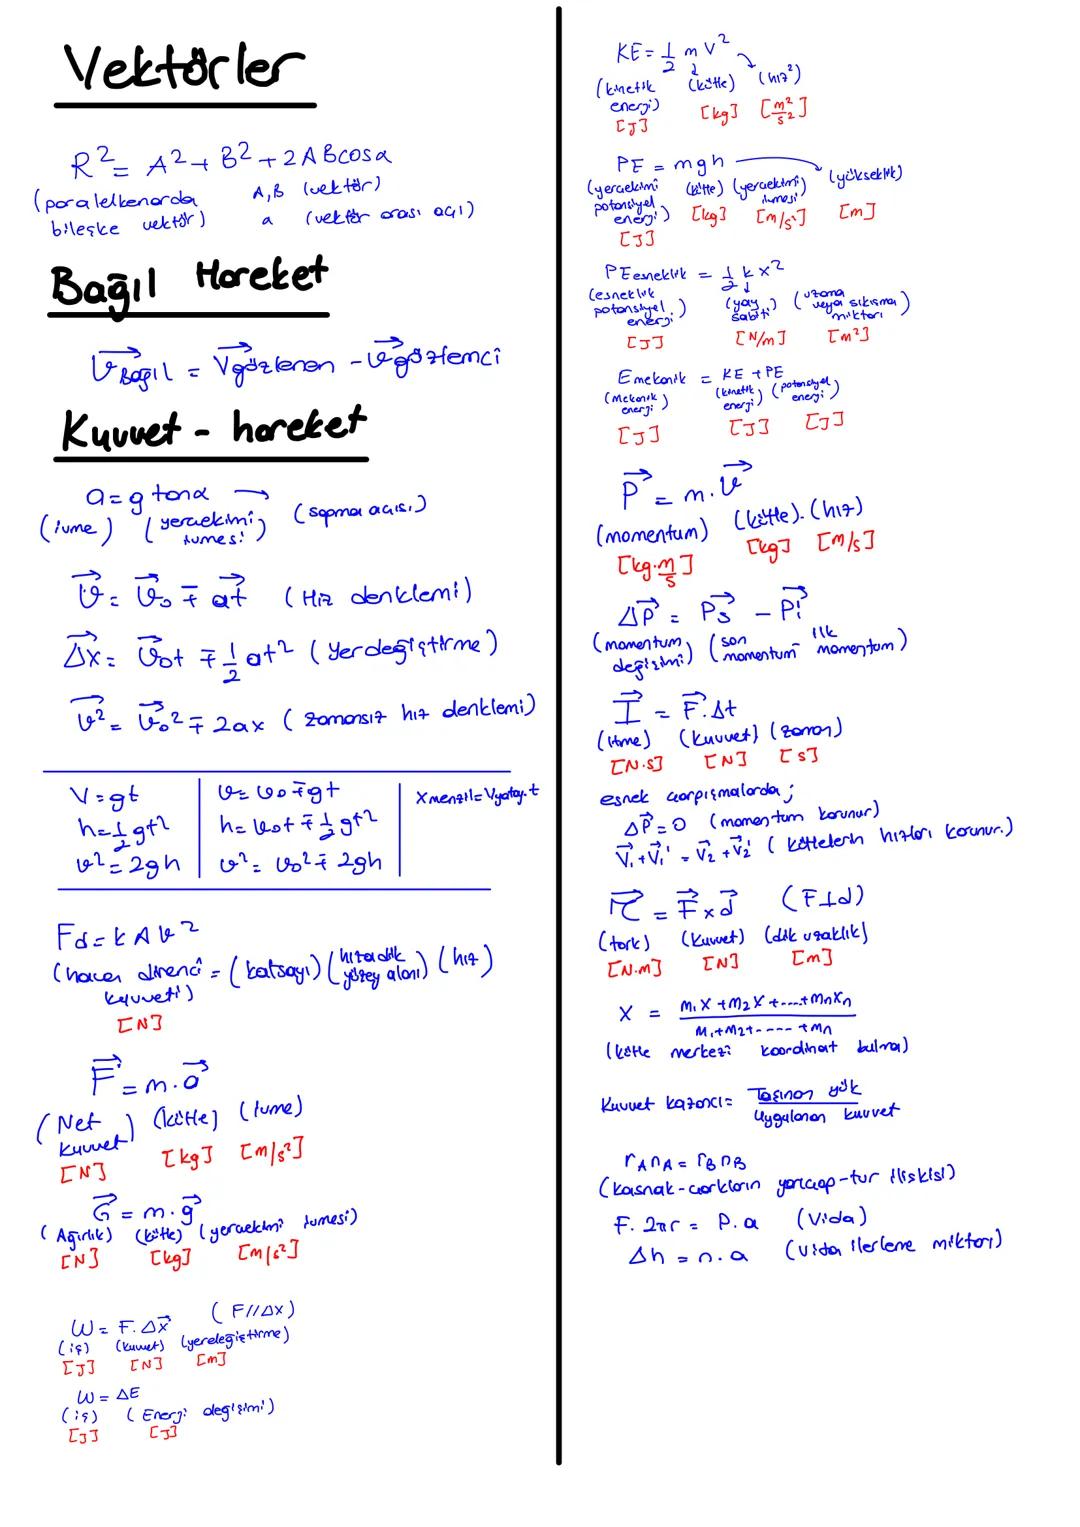 Vektörler
R² = A² + B² + 2ABcosα
(paralelkenarda A,B (vektör)
bileşke vektör) a (vektör arası açı)
Bağıl Hareket
v⃗Bağıl = V⃗gözlenen - v⃗gözlemci
Kuvvet - hareket
a = g tanα →
(ivme) (yerçekimi ivmesi) (sapma açısı)
v⃗ = v⃗₀ ∓ a⃗t (Hız denklemi)
Δx⃗ = v⃗₀t ∓ 1/2 at² (Yerdeğiştirme)
v⃗² = v⃗₀² ∓ 2ax (zamansız hız denklemi)
V = gt v = v₀ ∓ gt Xmenzil = Vyatay.t
h = 1/2 gt² h = v₀t ∓ 1/2 gt²
v² = 2gh v² = v₀² ∓ 2gh
Fd = kAv²
(hava direnci kuvveti) = (katsayı) (hıza dik yüzey alanı) (hız)
[N]
F⃗ = m.a⃗
(Net kuvvet) (kütle) (ivme)
[N] [kg] [m/s²]
G⃗ = m.g⃗
(Ağırlık) (kütle) (yerçekimi ivmesi)
[N] [kg] [m/s²]
W = F.Δx⃗ (F//Δx)
(iş) (kuvvet) (yerdeğiştirme)
[J] [N] [m]
W = ΔE
(iş) (Enerji değişimi)
[J] [J]
KE = 1/2 m v²
(kinetik enerji) (kütle) (hız²)
[J] [kg] [m²/s²]
PE = mgh
(yerçekimi potansiyel enerji) (kütle) (yerçekimi ivmesi) (yükseklik)
[J] [kg] [m/s²] [m]
PEesneklik = 1/2 k x²
(esneklik potansiyel enerji) (yay sabiti) (uzama veya sıkışma miktarı)
[J] [N/m] [m²]
Emekanik = KE + PE
(mekanik enerji) (kinetik enerji) (potansiyel enerji)
[J] [J] [J]
P⃗ = m.v⃗
(momentum) (kütle).(hız)
[kg.m/s] [kg] [m/s]
ΔP⃗ = Ps⃗ - Pi⃗
(momentum değişimi) (son momentum ilk momentum)
I⃗ = F⃗.Δt
(itme) (kuvvet) (zaman)
[N.s] [N] [s]
esnek çarpışmalarda;
ΔP⃗ = 0 (momentum korunur)
V⃗₁ + V⃗₁' = V⃗₂ + V⃗₂' (kütlelerin hızları korunur.)
τ⃗ = F⃗ x d⃗ (F⊥d)
(tork) (kuvvet) (dik uzaklık)
[N.m] [N] [m]
X = m₁X + m₂X + ....+ mnXn / m₁ + m₂ + ---- + mn
(kütle merkezi koordinat bulma)
Kuvvet kazancı = Taşınan yük / Uygulanan kuvvet
rAnA = rBnB
(kasnak-çarkların yarıçap-tur ilişkisi)
F. 2πr = P.a (Vida)
Δh = n.a (vida ilerleme miktarı)